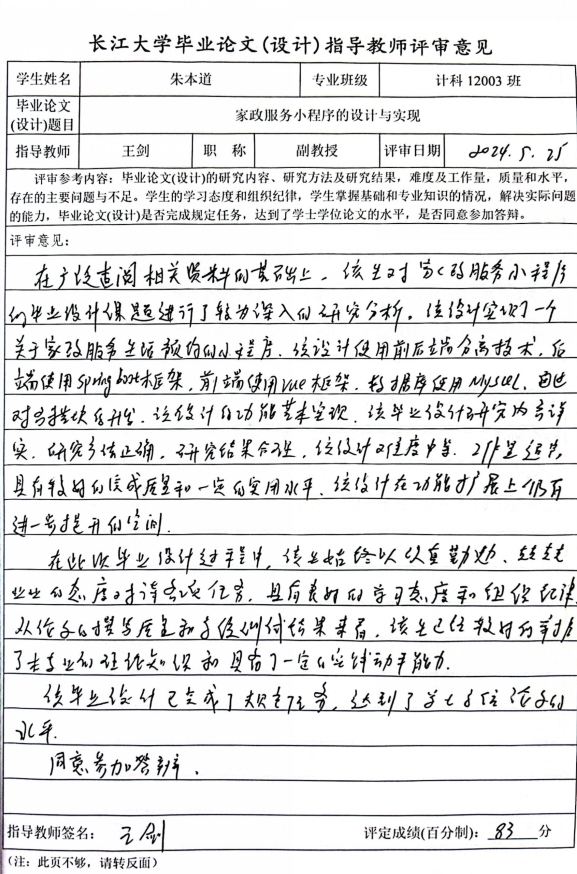 长江大学毕业论文(设计)指导教师评审意见
学生姓名 朱本道 专业班级 计科 12003 班
毕业论文(设计)题目 家政服务小程序的设计与实现
指导教师 王剑 职 称 副教授 评审日期 2024.5.25
评审参考内容:毕业论文(设计)的研究内容、研究方法及研究结果,难度及工作量,质量和水平,
存在的主要问题与不足。学生的学习态度和组织纪律,学生掌握基础和专业知识的情况,解决实际问题
的能力,毕业论文(设计)是否完成规定任务,达到了学士学位论文的水平,是否同意参加答辩。
评审意见:
在广泛查阅相关资料的基础上,该生对家政服务小程序
的毕业设计课题进行了较为深入的研究分析。该设计实现了一个
关于家政服务在线预约的小程序。该设计使用前后端分离技术,后
端使用Spring boot框架,前端使用vue框架,数据库使用Mysql,通过
对各模块的开发,该设计的功能基本实现。该毕业设计研究内容详
实,研究方法正确,研究结果合理,该设计难度中等,工作量饱满,
具有较好的完成质量和一定的实用水平,该设计在功能扩展上仍有
进一步提升的空间.
在此次毕业设计过程中,该生始终以认真勤勉、兢兢
业业的态度对待各项任务,具有良好的学习态度和组织纪律
从论文的撰写质量和系统测试结果来看,该生已经较好的掌握
了本专业的理论知识和具有了一定的实践动手能力.
该毕业设计已完成了规定任务,达到了学士学位论文的
水平.
同意参加答辩.
指导教师签名: 王剑 评定成绩(百分制): 83 分
(注:此页不够,请转反面)